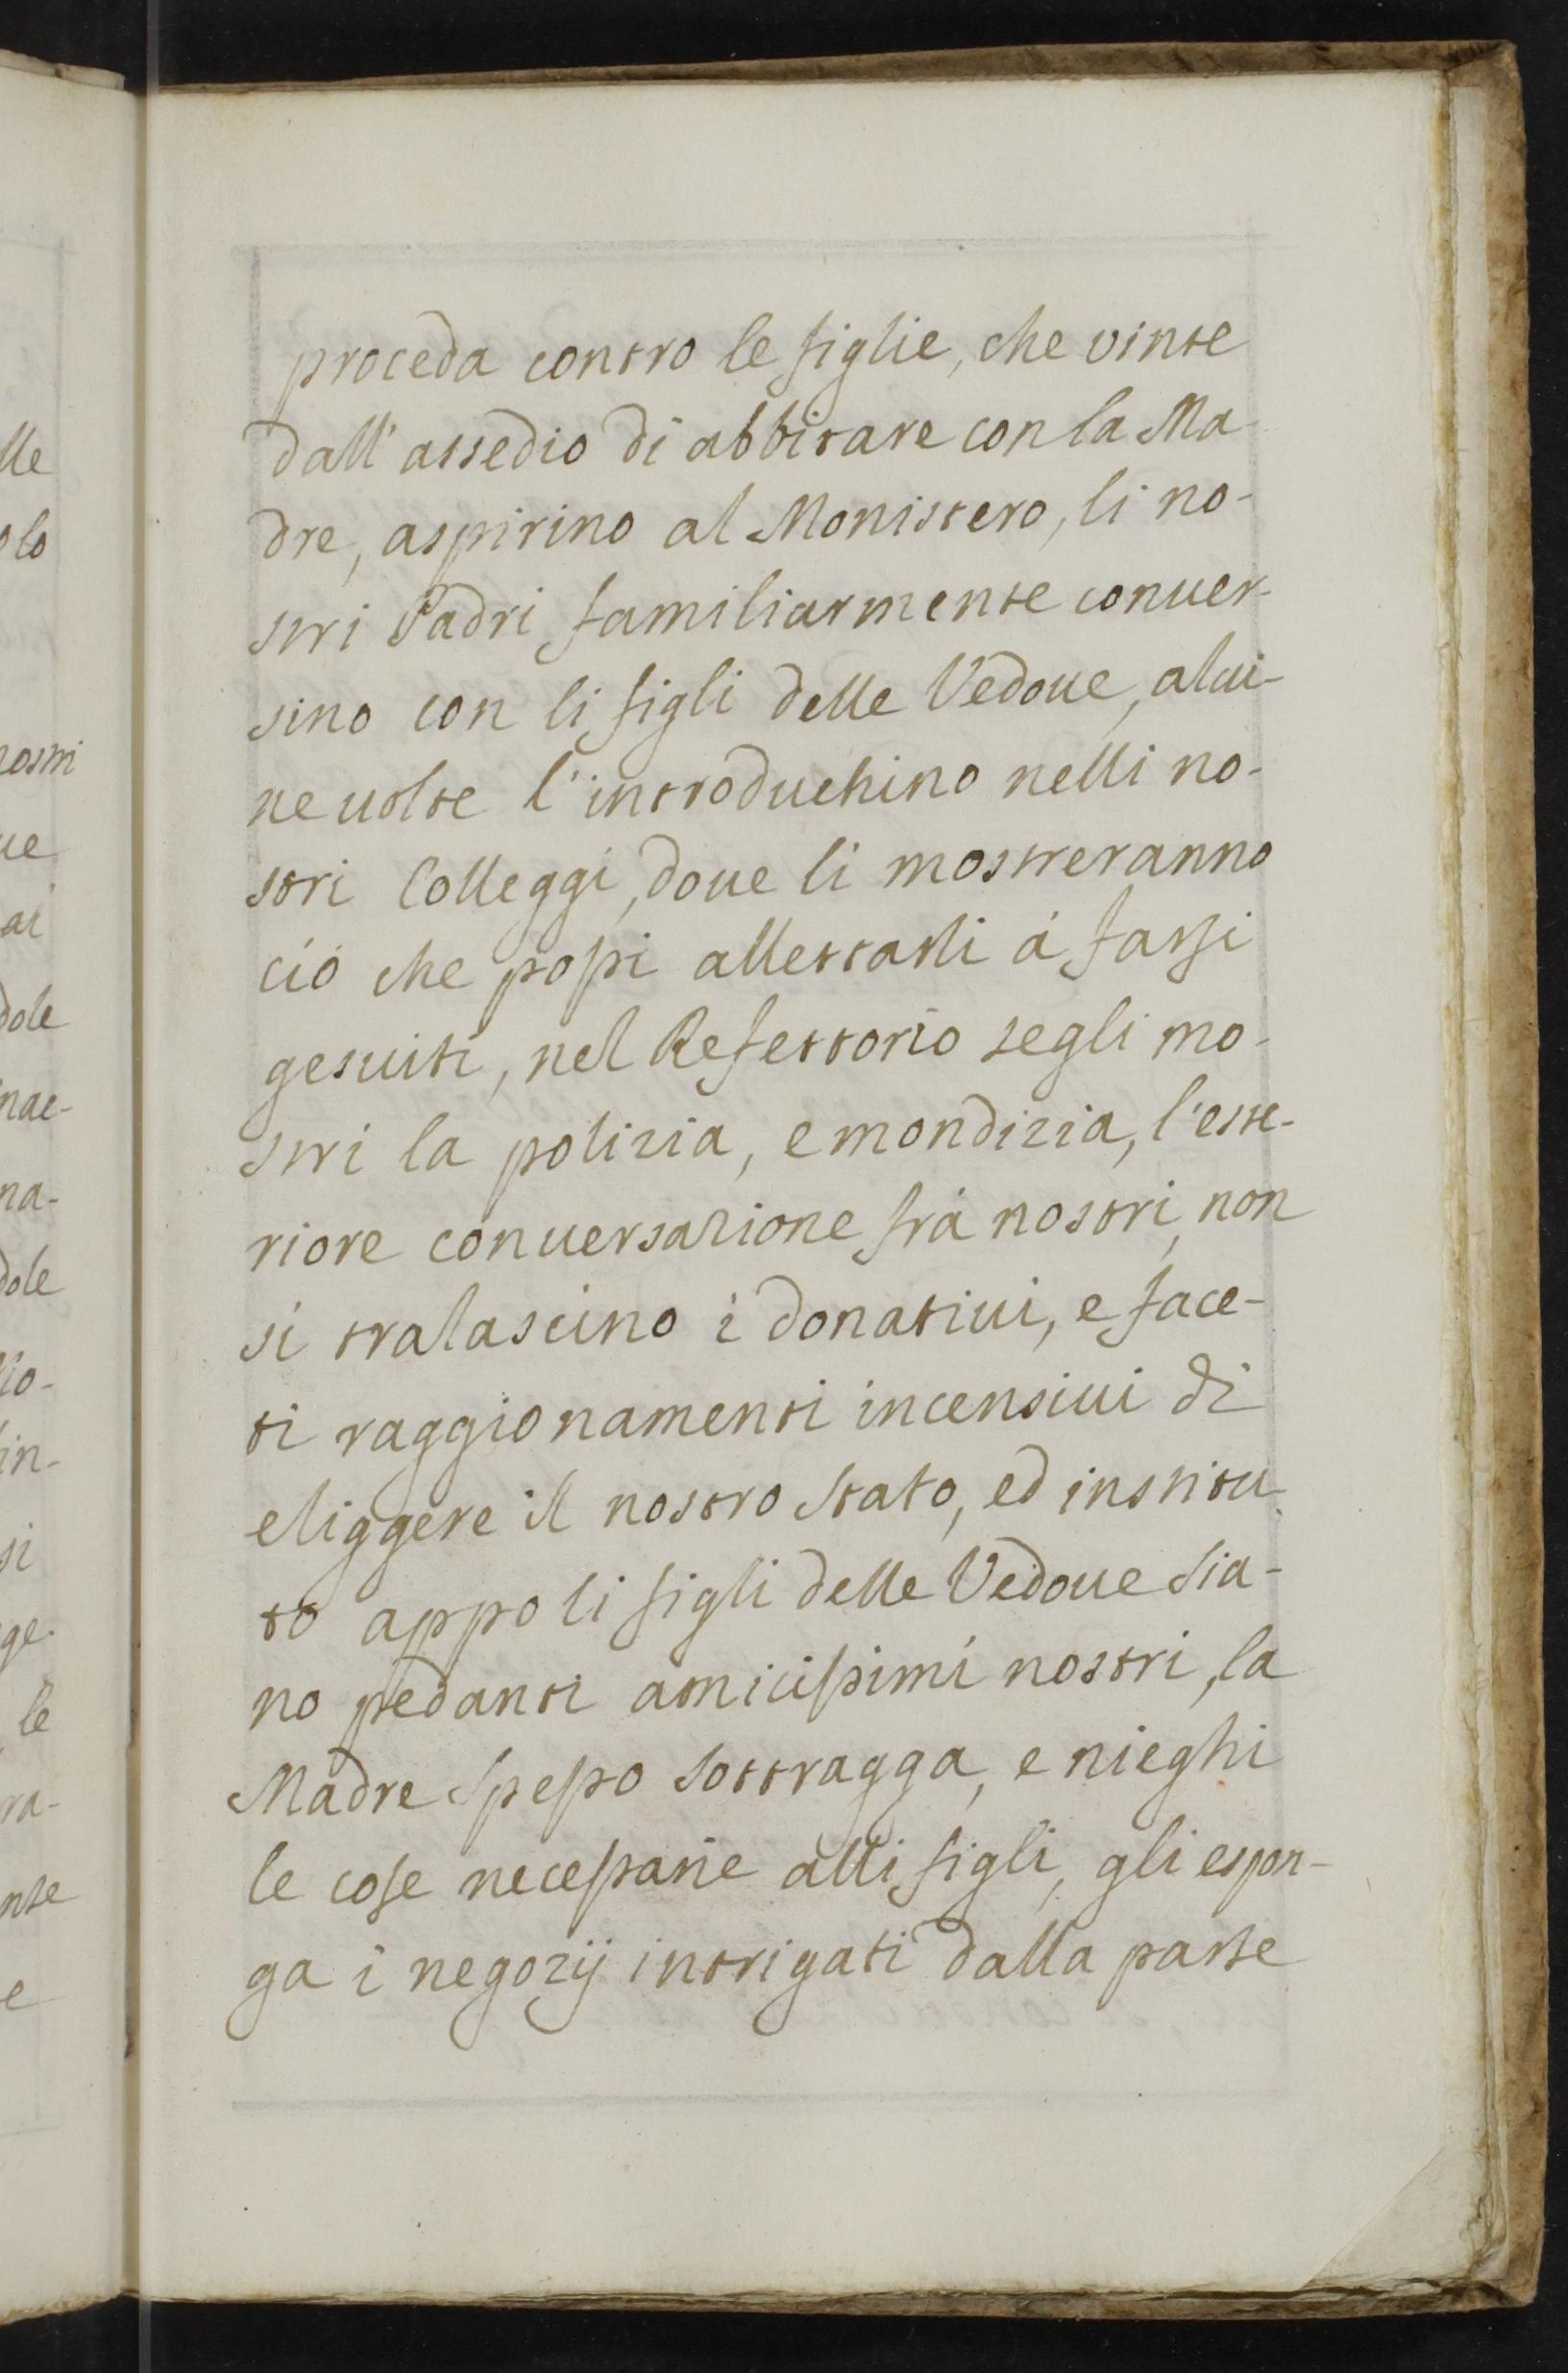 proceda contro le figlie, che vinte
dall' assedio di abbitare con la Ma-
dre, aspirino al Monistero, li no-
stri Padri familiarmente conuer-
sino con li figli delle Vedoue, alcu-
ne uolte l'introduchino nelli no-
stri Colleggi, doue li mostreranno
ció che possi allettarli á farsi
gesuiti, nel Refettorio segli mo-
stri la polizia, e mondizia, l'este-
riore conuersazione frà nostri, non
si tralascino i donatiui, e face-
ti raggionamenti incensiui di
eliggere il nostro stato, ed institu-
to appo li figli delle Vedoue sia-
no pedanti amicissimi nostri, la
Madre spesso sottragga, e nieghi
le cose necessarie alli figli, gli espon-
ga i negozij intrigati dalla parte
lle
olo
nostri
ue
ai
dole
nae-
na-
dole
lio-
in-
si
ge.
le
ra-
nte
e